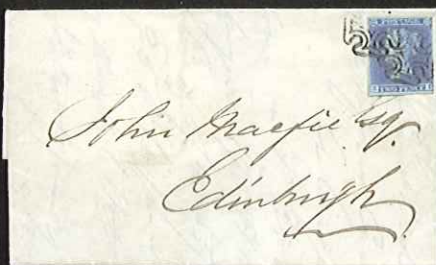 POSTAGE
TWO PENCE
John Macfie Esq.
Edinburgh